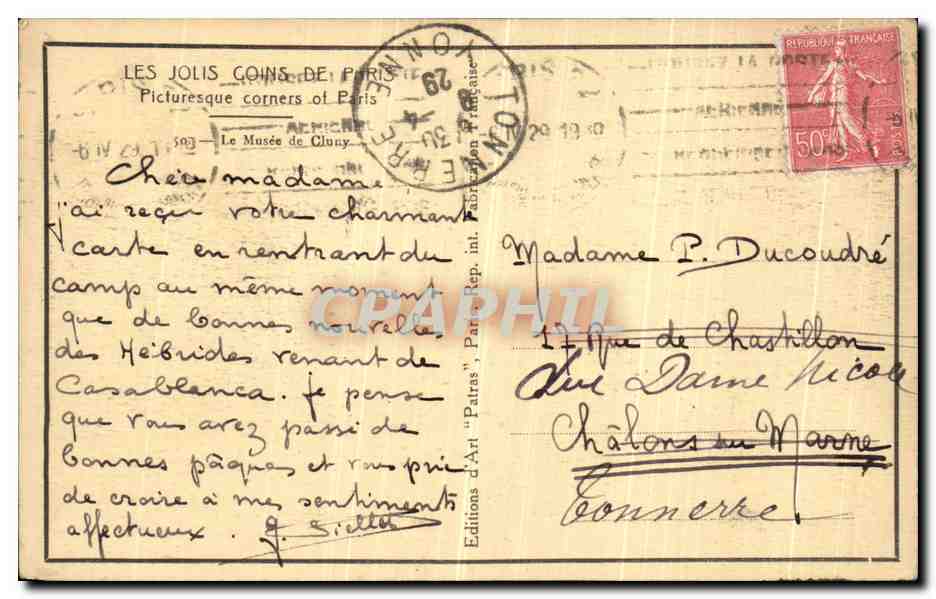 LES JOLIS COINS DE PARIS
Picturesque corners of Paris
503 - Le Musée de Cluny
Chère madame
j'ai reçu votre charmant
carte en rentrant du
camp au même moment
que de bonnes nouvelles
des Hébrides venant de
Casablanca. je pense
que vous avez passé de
bonnes pâques et vous prie
de croire à mes sentiments
affectueux.
Editions d'Art "Patras", Paris, Rep. int. Fabrication Française
TONNERRE
YONNE
29
4
30
29 1930
REPUBLIQUE FRANÇAISE
50c
POSTES
Madame P. Ducoudré
17 Rue de Chastillon
Dame Nicole
Châlons sur Marne
Tonnerre.
CPAPHIL